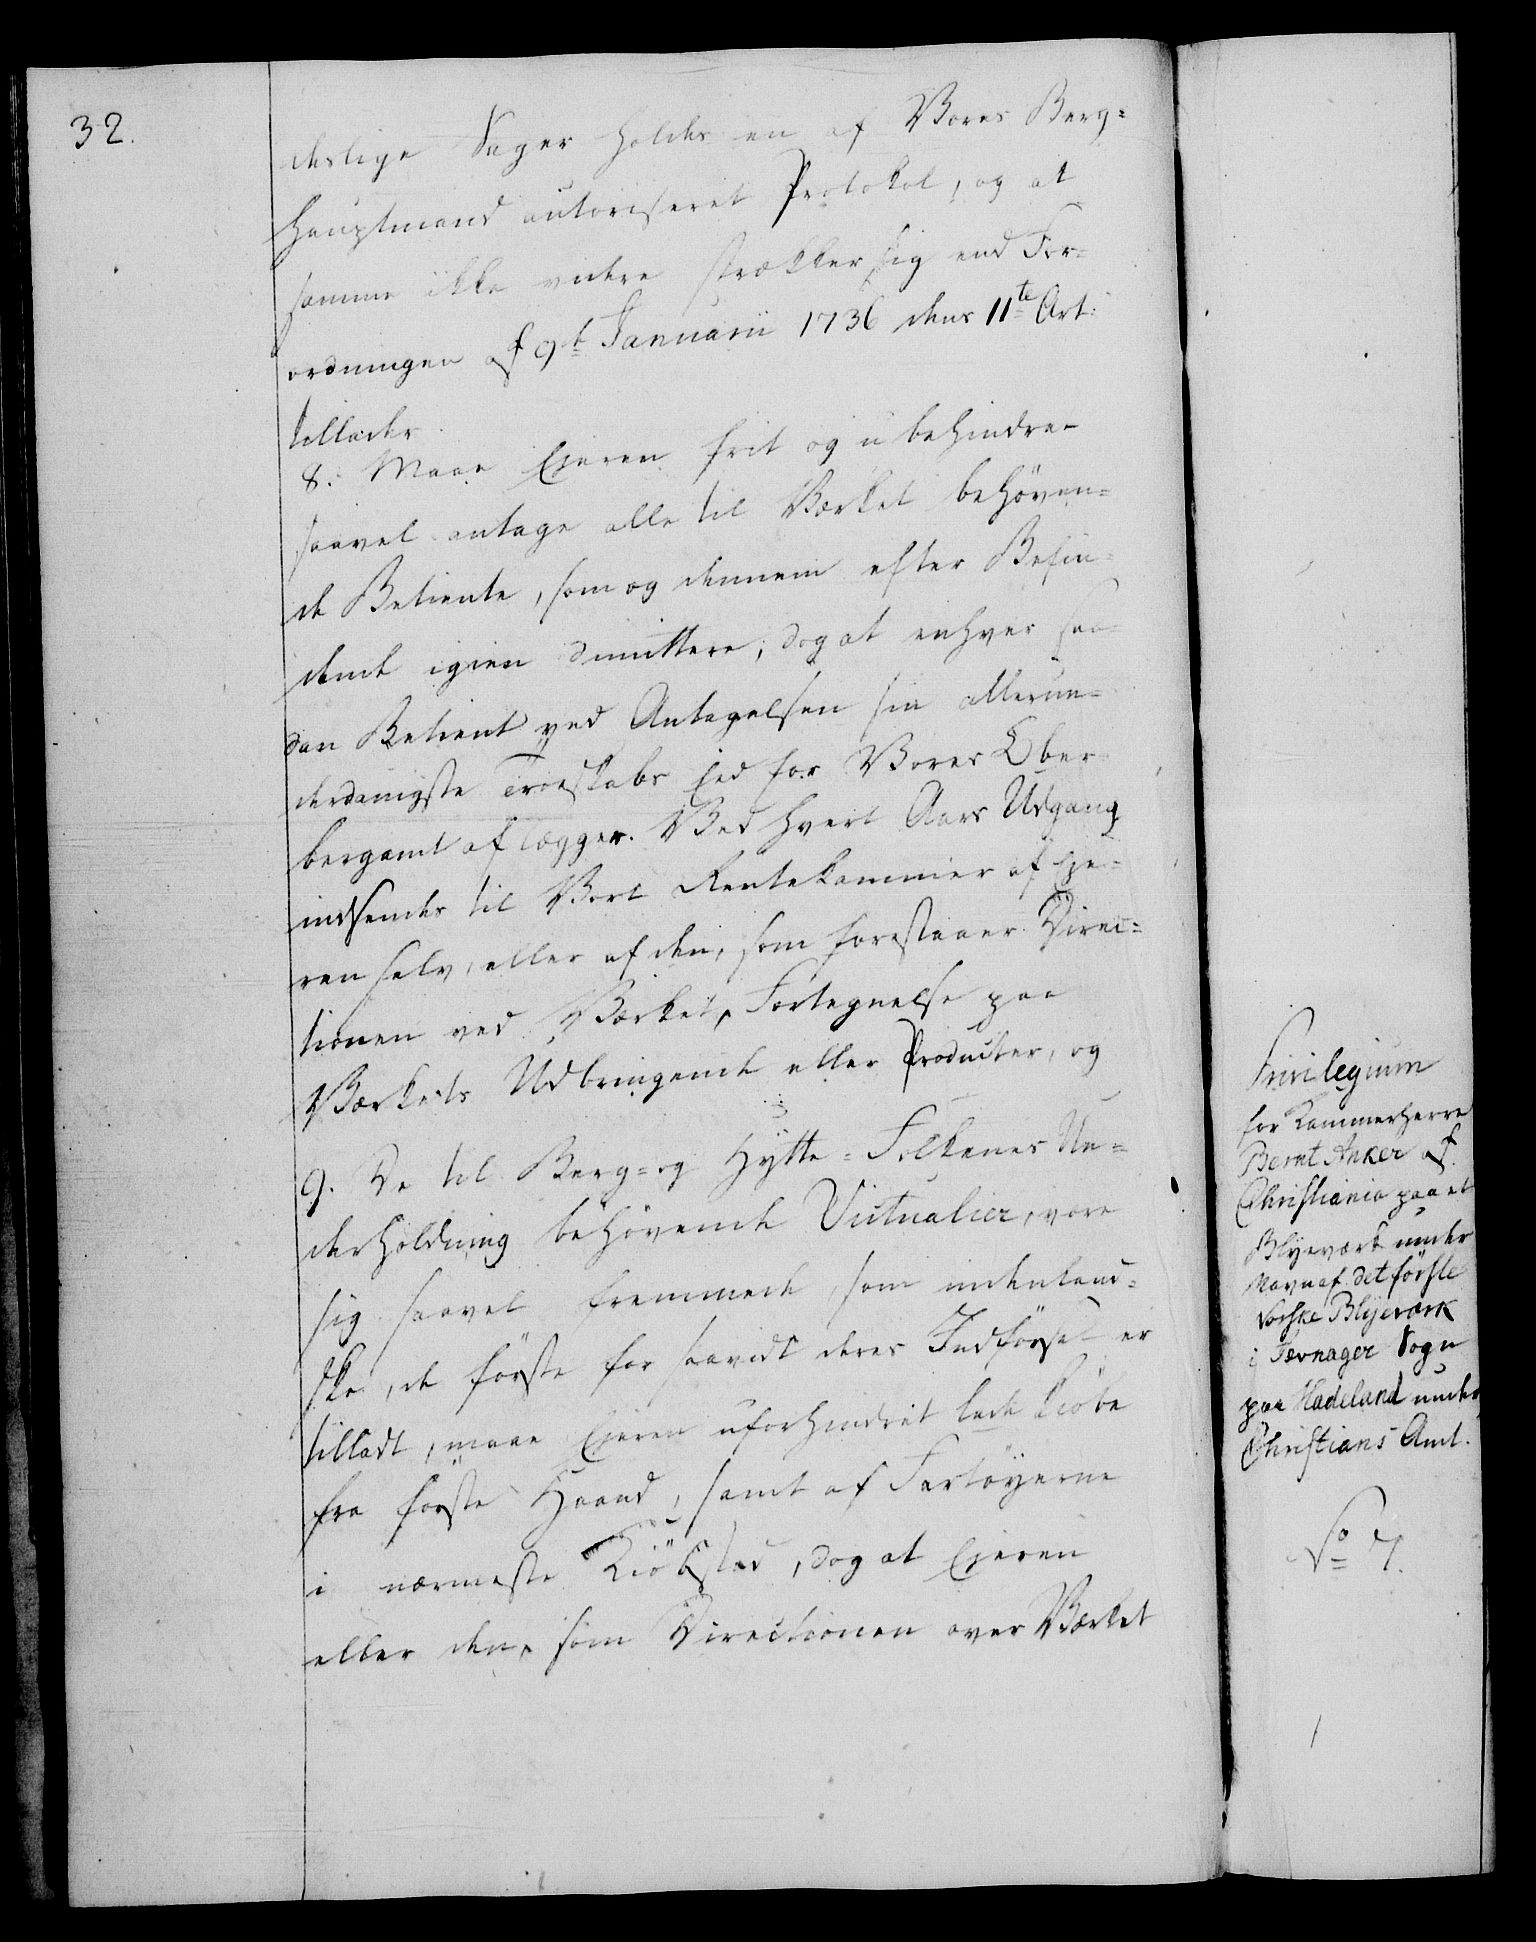 32.
deslige Sager holdes en af Vores Berg=
hauptmand autoriseret Protokol, og at
samme ikke videre strækker sig end For=
ordningen af 9t Januarii 1736 dens 11te Art:
tillader.
8. Maae Ejeren frit og ubehindret
saavel antage alle til Værket behöven=
de Betiente, som og dennem efter Befin=
dende igien dimittere; dog at enhver saa=
dan Betient ved Antagelsen sin allerun=
derdanigste Troeskabs Eed for Vores Ober=
bergamt aflægger. Ved hvert Aars Udgang
indsendes til Vort Rentekammer af Eje=
ren selv, eller af den, som forestaaer Direc=
tionen ved Værket, Fortegnelse paa
Værkets Udbringende eller Producter, og
9. De til Berg= og Hytte=Folkenes Un=
derholdning behövende Victualier, være
sig saavel fremmede, som indenland=
ske, de förste for saavidt deres Indförsel er
tilladt, maae Ejeren uforhindret lade kiöbe
fra förste Haand, samt af Fartöyerne
i nærmeste Kiöbstad, dog at Ejeren
eller den, som Directionen over Værket
Privilegium
for Kammerherre
Bernt Anker af
Christiania paa et
Blyeværk under
Navn af det förste
Norske Blyeværk
i Jevnager Sogn
paa Hadeland under
Christians Amt.
No 7.